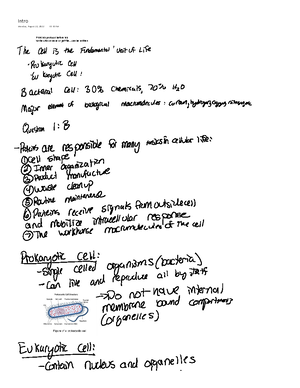 Intro
The Cell is the Fundamental Unit of Life
- Prokaryotic Cell
Eukaryotic Cell:
Bacterial Cell: 30% Chemicals, 70% H₂O
Major element of biological macromolecules: carbon, hydrogen, oxygen, nitrogen
Question 1: B
- Proteins are responsible for many in cellular life:
① Cell shape
② Inner organization
③ Product manufacture
④ Waste cleanup
⑤ Routine maintenance
⑥ Proteins receive signals from outside cell
and mobilize intracellular response
⑦ The workhorse macromolecules of the cell
Prokaryotic Cell:
- Single celled organisms (bacteria)
- Can live and reproduce all by itself
→ Do not have internal
membrane bound compartments
(organelles)
Eukaryotic Cell:
- Contain nucleus and organelles